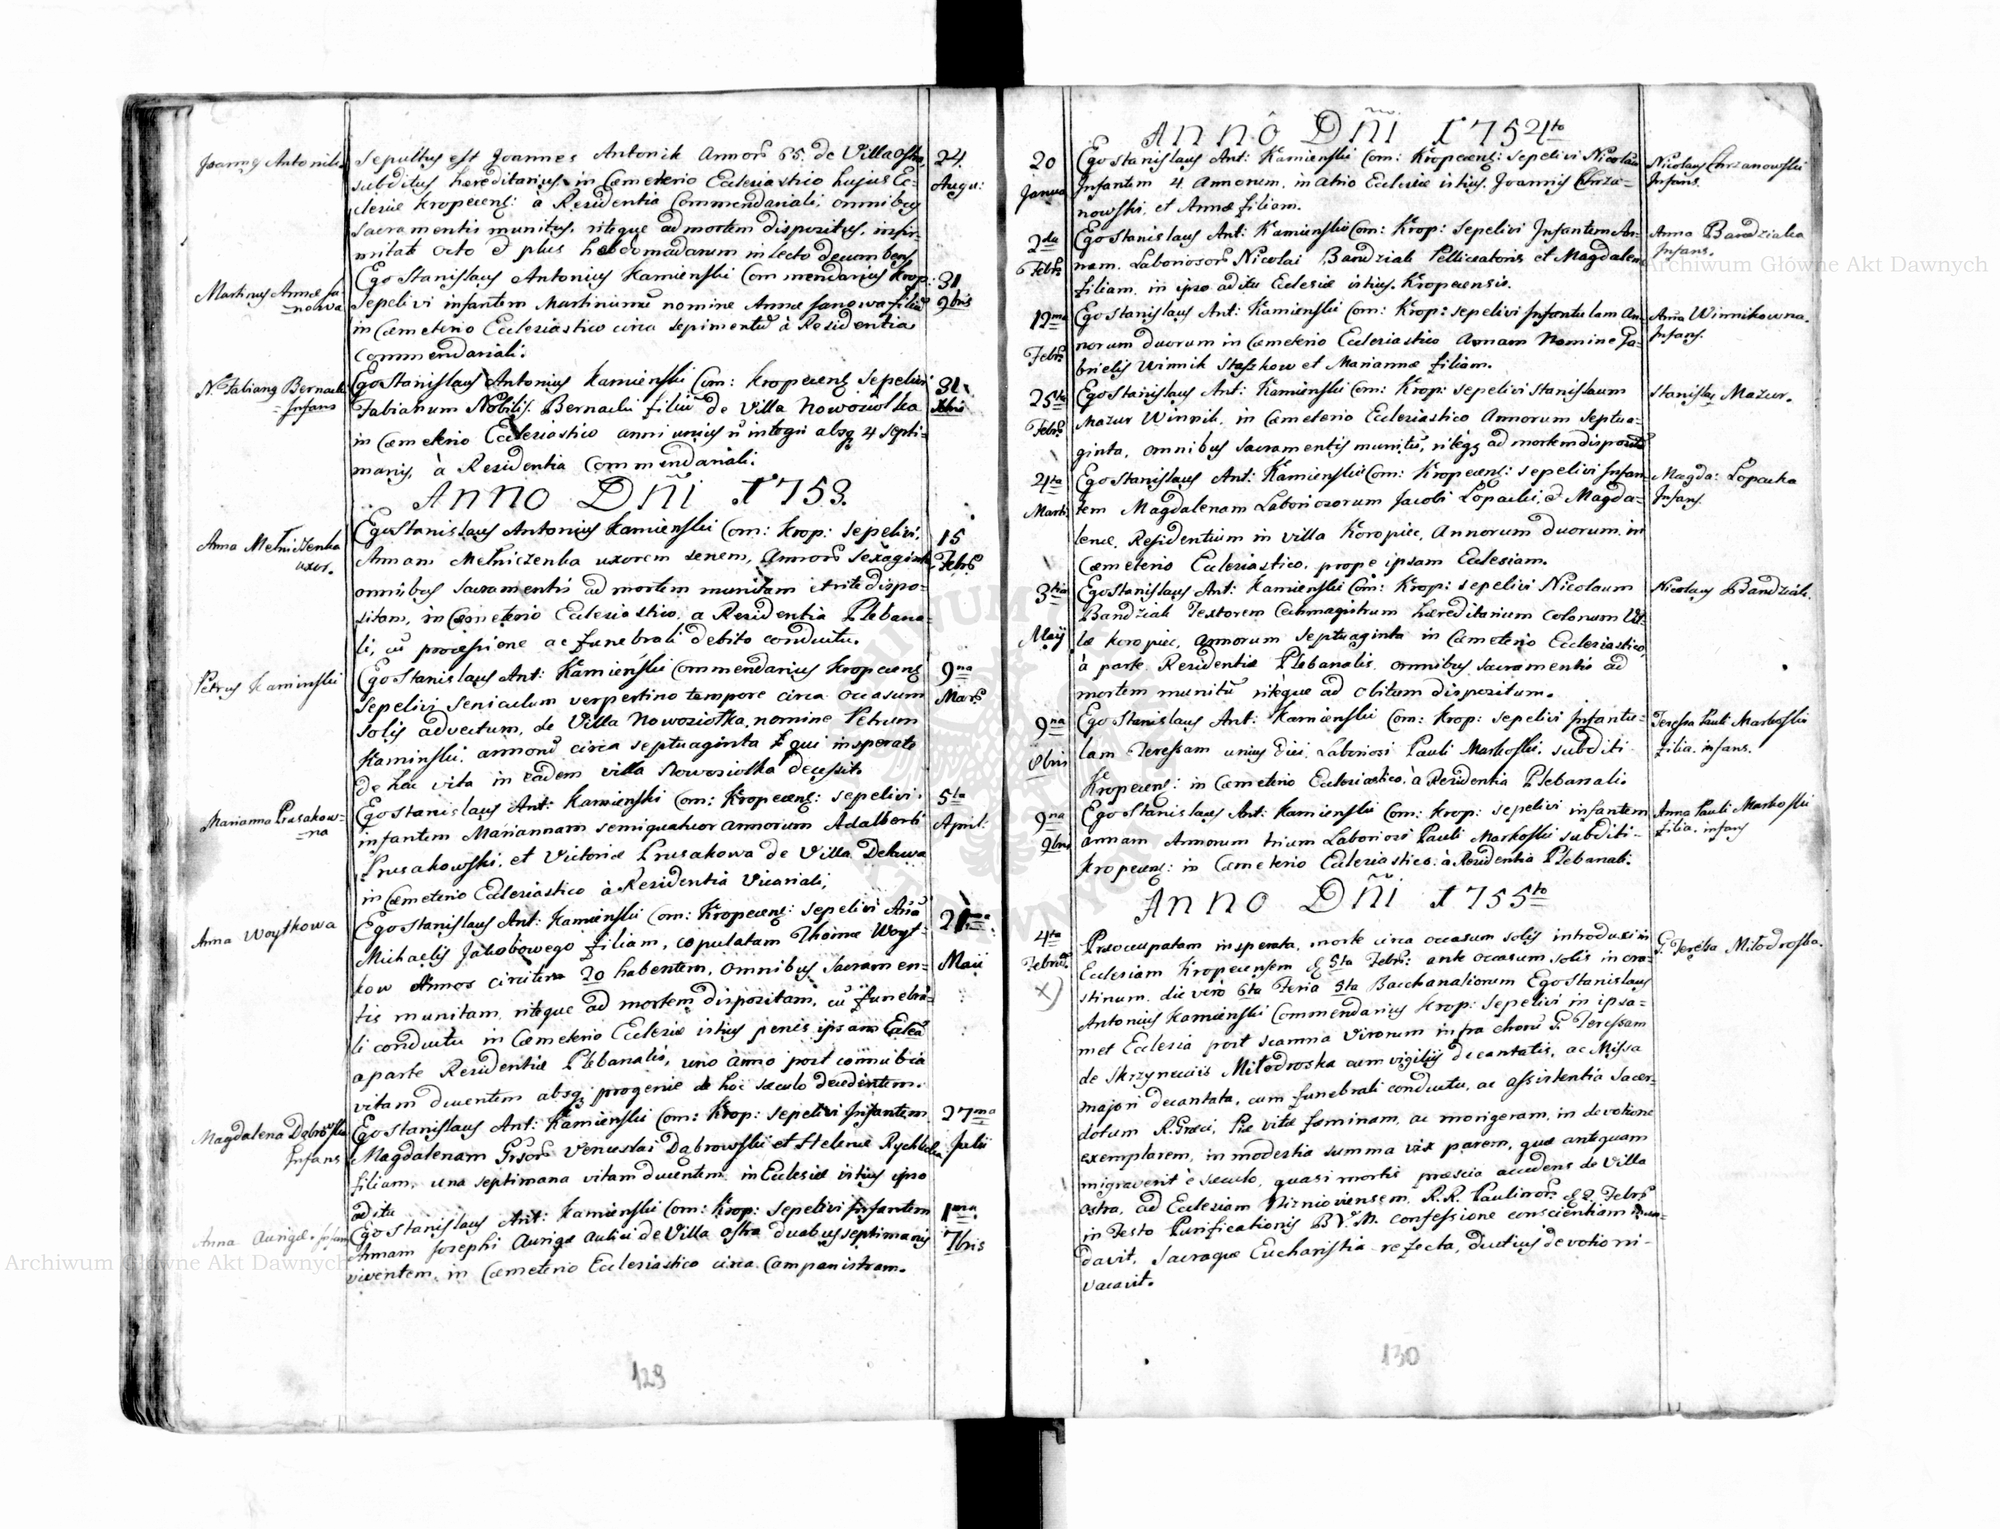 Joannes Antonik
Sepultus est Joannes Antonik Annorũ 65. de Villa Ostra
subditus hereditarius, in Cæmeterio Ecclesiastico hujus Ec-
clesiæ Kropecens: a Residentia Commendariali, omnibus
sacramentis munitus, riteque ad mortem dispositus, infir-
mitate octo et plus hebdomadarum in lecto decumbens
24
Augu:
Martinus Annæ
Ego Stanislaus Antonius Kamienski Commendarius Krop:
Sepelivi infantem Martinum nomine Annæ filiũ
in Cæmeterio Ecclesiastico circa sepimentũ à Residentia
Commendariali.
31
9bris
N. Fabianus Bernacki
Infans
Ego Stanislaus Antonius Kamienski Com: Kropecens sepelivi
Fabianum Nobilis Bernacki filiũ de Villa Nowosiolka
in Cæmeterio Ecclesiastico anni unius ñ integri absq 4 septi-
manis, à Residentia Commendariali.
31
Xbris
ANNO DÑI 1753.
Anna Melniczenka
uxor.
Ego Stanislaus Antonius Kamienski Com: Krop: sepelivi
Annam Melniczenka uxorem senem, Annorũ sexaginta
omnibus sacramentis ad mortem munitam et rite dispo-
sitam, in Cæmeterio Ecclesiastico, a Residentia Plebana-
li, cũ processione ac funebrali debito conductu.
15
Febr
Petrus Kaminski
Ego Stanislaus Ant: Kamienski Commendarius Kropecens
Sepelivi seniculum vespertino tempore circa occasum
solis advectum, de Villa Nowosiolka, nomine Petrum
Kaminski, annorũ circa septuaginta qui insperate
de hac vita in eadem villa Nowosiolka decessit
9na
Mar
Marianna Prusakow-
na
Ego Stanislaus Ant: Kamienski Com: Kropecens: sepelivi
infantem Mariannam semiquatuor annorum Adalberti
Prusakowski, et Victoriæ Prusakowa de Villa Delawa
in Cæmeterio Ecclesiastico à Residentia Vicariali,
5ta
April:
Anna Woytkowa
Ego Stanislaus Ant: Kamienski Com: Kropecens: sepelivi Anã
Michaelis Jakobowego filiam, copulatam Thomæ Woyt-
kow Annos circiter 20 habentem, omnibus sacramen-
tis munitam, riteque ad mortem dispositam, cũ funebra-
li conductu in Cæmeterio Ecclesiæ istius penes ipsam
a parte Residentiæ Plebanalis, uno anno post connubia
vitam ducentem absq progenie de hoc sæculo decedentem.
21ma
Maii
Magdalena Dąbrowska
Infans
Ego Stanislaus Ant: Kamienski Com: Krop: sepelivi Infantem
Magdalenam Venceslai Dąbrowski et Helenæ Rychlicka
filiam, una septimana vitam ducentem in Ecclesiæ istius ipso
aditu
27ma
Julii
Anna Aurigæ Infans
Ego Stanislaus Ant: Kamienski Com: Krop: sepelivi Infantem
Annam Josephi Aurigæ aulici de Villa Ostra duabus septimanis
viventem, in Cæmeterio Ecclesiastico circa Campanistram.
1ma
7bris
129
ANNÔ DÑI 1754to
20
Janua
Ego Stanislaus Ant: Kamienski Com: Kropecens: sepelivi Nicolaũ
Infantem 4. Annorum, in atrio Ecclesiæ istius, Joannis Chrza-
nowski, et Annæ filiam.
Nicolaus Chrzanowski
Infans.
2da
Febr
Ego Stanislaus Ant: Kamienski Com: Krop: sepelivi Infantem An-
nam, Laboriosorũ Nicolai Bandziak Pelliceatoris et Magdalenæ
filiam, in ipso aditu Ecclesiæ istius Kropecensis.
Anna Bandziaka
Infans.
19ma
Febr
Ego Stanislaus Ant: Kamienski Com: Krop: sepelivi Infantulam An-
norum duorum in Cæmeterio Ecclesiastico Annam Nomine Ga-
brielis Winnik Staszkow et Mariannæ filiam.
Anna Winnikowna.
Infans.
25ta
Febr
Ego Stanislaus Ant: Kamienski Com: Krop: sepelivi Stanislaum
Mazur Winnik, in Cæmeterio Ecclesiastico Annorum septua-
ginta, omnibus sacramentis munitũ, riteq ad mortem dispositũ
Stanislas Mazur.
4ta
Marti
Ego Stanislaus Ant: Kamienski Com: Kropecens: sepelivi Infan-
tem Magdalenam Laboriosorum Jacobi Łopacki et Magda-
lenæ, Residentium in villa Koropiec, Annorum duorum, in
Cæmeterio Ecclesiastico, prope ipsam Ecclesiam.
Magda: Łopacka
Infans
3tia
Maij
Ego Stanislaus Ant: Kamienski Com: Krop: sepelivi Nicolaum
Bandziak Textorem Cechmagistrum hæreditarium colonum Vil-
læ Koropiec, Annorum septuaginta in Cæmeterio Ecclesiastico,
à parte Residentiæ Plebanalis, omnibus sacramentis ad
mortem munitũ ritèque ad obitum dispositum.
Nicolaus Bandziak.
9na
8bris
Ego Stanislaus Ant: Kamienski Com: Krop: sepelivi Infantu-
lam Teressam unius diei, Laboriosi Pauli Markoski, subditi
Kropecens: in Cæmeterio Ecclesiastico, à Residentia Plebanali.
Teressa Pauli Markoski
filia, infans.
9na
9bris
Ego Stanislaus Ant: Kamienski Com: Krop: sepelivi infantem
annam Annorum trium Laboriosi Pauli Markoski subditi-
Kropecens: in Cæmeterio Ecclesiastico, à Residentia Plebanali.
Anna Pauli Markoski
filia, infans
ANNO DÑI 1755to
4ta
Februa
x)
Præoccupatam insperata morte circa occasum solis introduxi in
Ecclesiam Kropecensem et 5ta Febr: ante occasum solis in cra-
stinum, die verò 6ta Feria 5ta Bacchanaliorum Ego Stanislaus
Antonius Kamienski Commendarius Krop: sepelivi in ipsa-
met Ecclesia post scamna Virorum infra chorũ G. Teressam
de Skrzynecciis Miłodroska cum vigiliis decantatis, ac Missa
majori decantata, cum funebrali conductu, ac assistentia Sacer-
dotum R. Græci, Piæ vitæ fæminam, ac morigeram, in devotione
exemplarem, in modestia summa vix parem, quæ antequam
migraverit è sæculo, quasi mortis præscia accedens de Villa
Ostra, ad Ecclesiam Nizniovensem R.R. Paulinorũ et 2 Febr
in Festo Purificationis B.V.M. confessione conscientiam mun-
davit, Sacraque Eucharistia refecta, diutius devotioni-
vacavit.
G. Teressa Miłodroska.
130
Archiwum Główne Akt Dawnych
Archiwum Główne Akt Dawnych